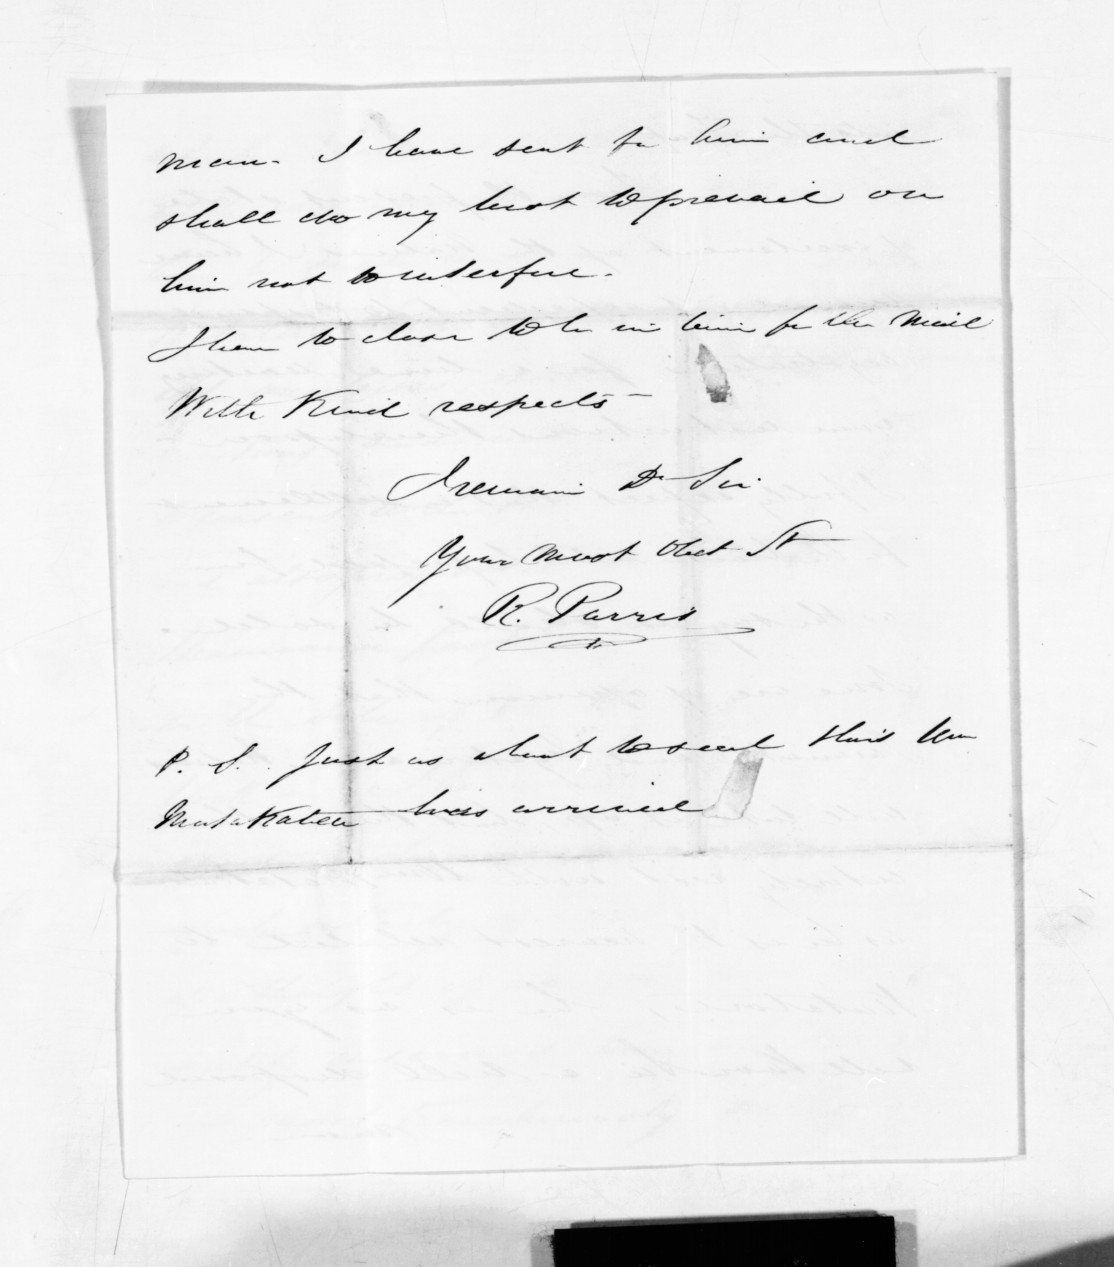 man. I have sent for him and
shall do my best to prevail on
him not to interfere.
I have to close to be in time for the Mail
With Kind respects
I remain Dr Sir
Your most Obet St
R. Parris
P. S. Just as about to seal this Wm
Matakatea has arrived